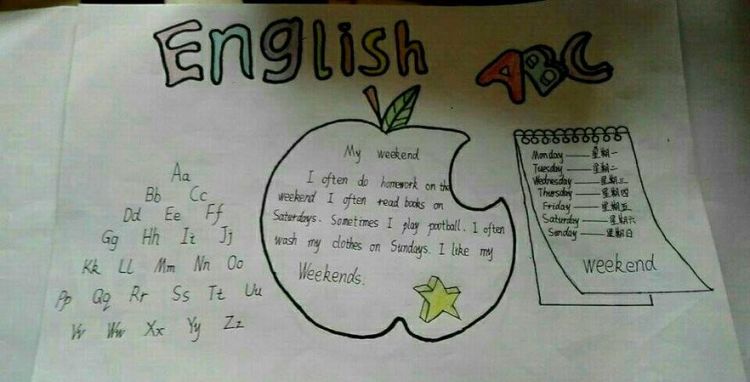 English ABC
Aa
Bb Cc
Dd Ee Ff
Gg Hh Ii Jj
Kk Ll Mm Nn Oo
Pp Qq Rr Ss Tt Uu
Vv Ww Xx Yy Zz
My weekend
I often do homework on the
weekend I often read books on
Saturdays. Sometimes I play pootball. I often
wash my clothes on Sundays. I like my
Weekends.
Monday 星期一
Tuesday 星期二
Wednesday 星期三
Thursday 星期四
Friday 星期五
Saturday 星期六
Sunday 星期日
weekend